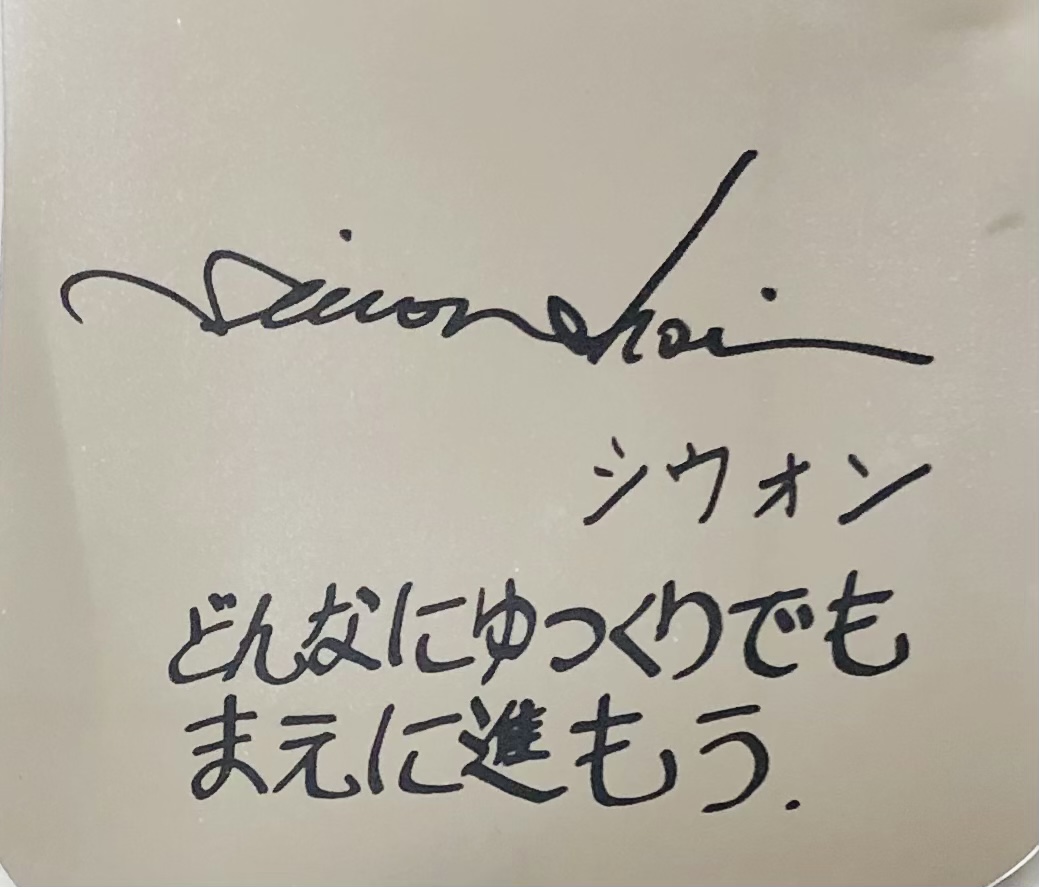 Siwon Choi
シウォン
どんなにゆっくりでも
まえに進もう.